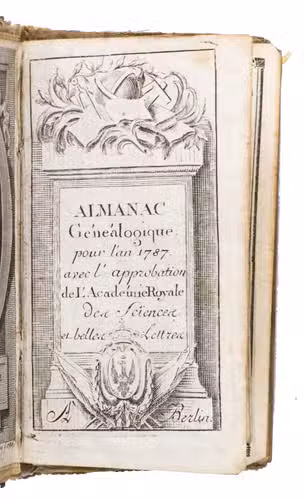 ALMANAC
Généalogique
pour l'an 1787.
avec l'approbation
de L'Académie Royale
des Sciences
et belles Lettres
A Berlin.